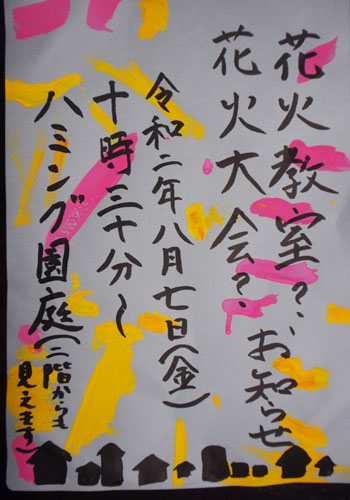 花火教室？、お知らせ
花火大会？、
令和二年八月七日（金）
十時三十分〜
ハミング園庭（二階からも
見えます）